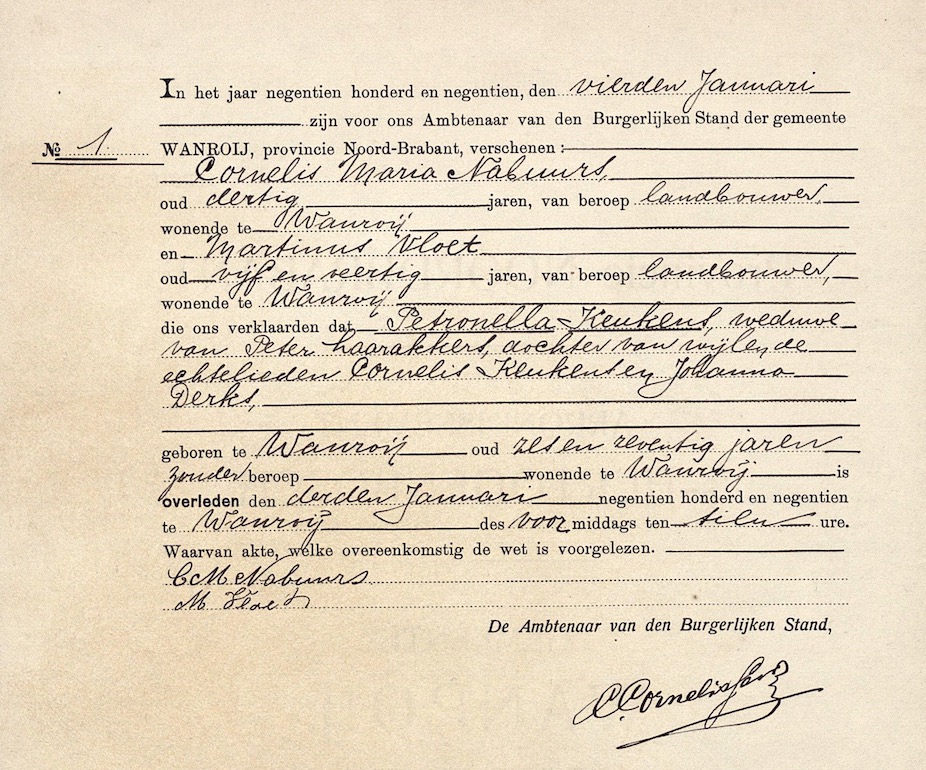 In het jaar negentien honderd en negentien, den vierden Januari
zijn voor ons Ambtenaar van den Burgerlijken Stand der gemeente
№ 1. WANROIJ, provincie Noord-Brabant, verschenen:
Cornelis Maria Nabuurs,
oud dertig jaren, van beroep landbouwer,
wonende te Wanroij
en Martinus Vloet
oud vijf en veertig jaren, van beroep landbouwer,
wonende te Wanroij
die ons verklaarden dat Petronella Keukens, weduwe
van Peter Haarakkers, dochter van wijlen de
echtelieden Cornelis Keukens en Johanna
Derks,
geboren te Wanroij oud zes en zeventig jaren
zonder beroep wonende te Wanroij is
overleden den derden Januari negentien honderd en negentien
te Wanroij des voor middags ten tien ure.
Waarvan akte, welke overeenkomstig de wet is voorgelezen.
C M Nabuurs
M Vloet
De Ambtenaar van den Burgerlijken Stand,
C. Cornelissen